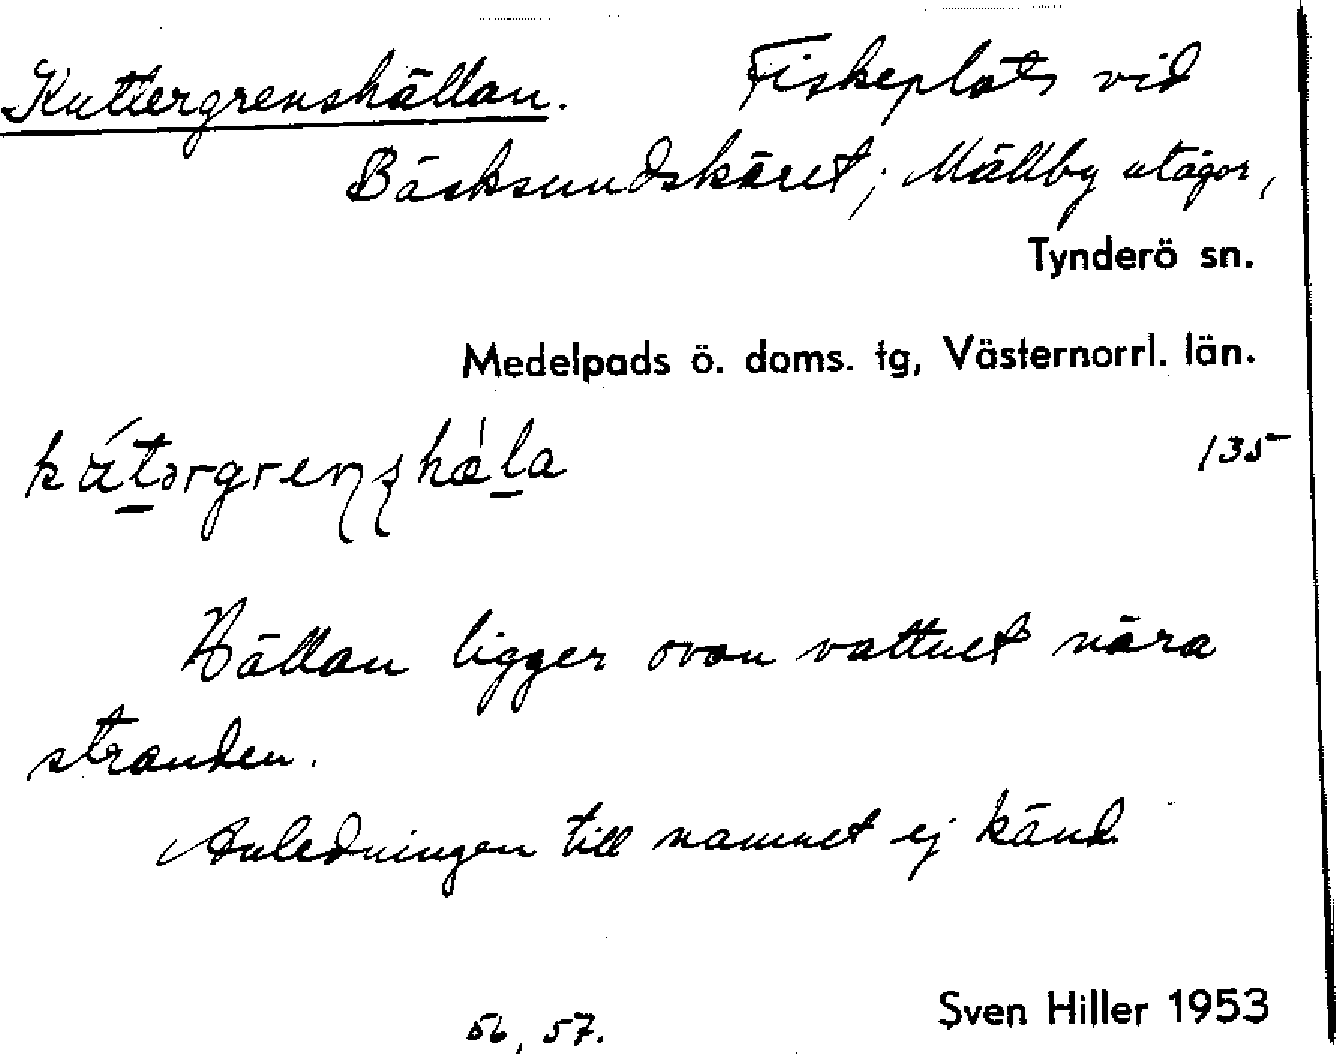 Kuttergrenshällan. Fiskeplats vid
Bäcksundskäret; Mällby utägor,
Tynderö sn.
Medelpads ö. doms. tg, Västernorrl. län.
135
Hällan ligger ovan vattnet nära
stranden.
Anledningen till namnet ej känd
56, 57.
Sven Hiller 1953